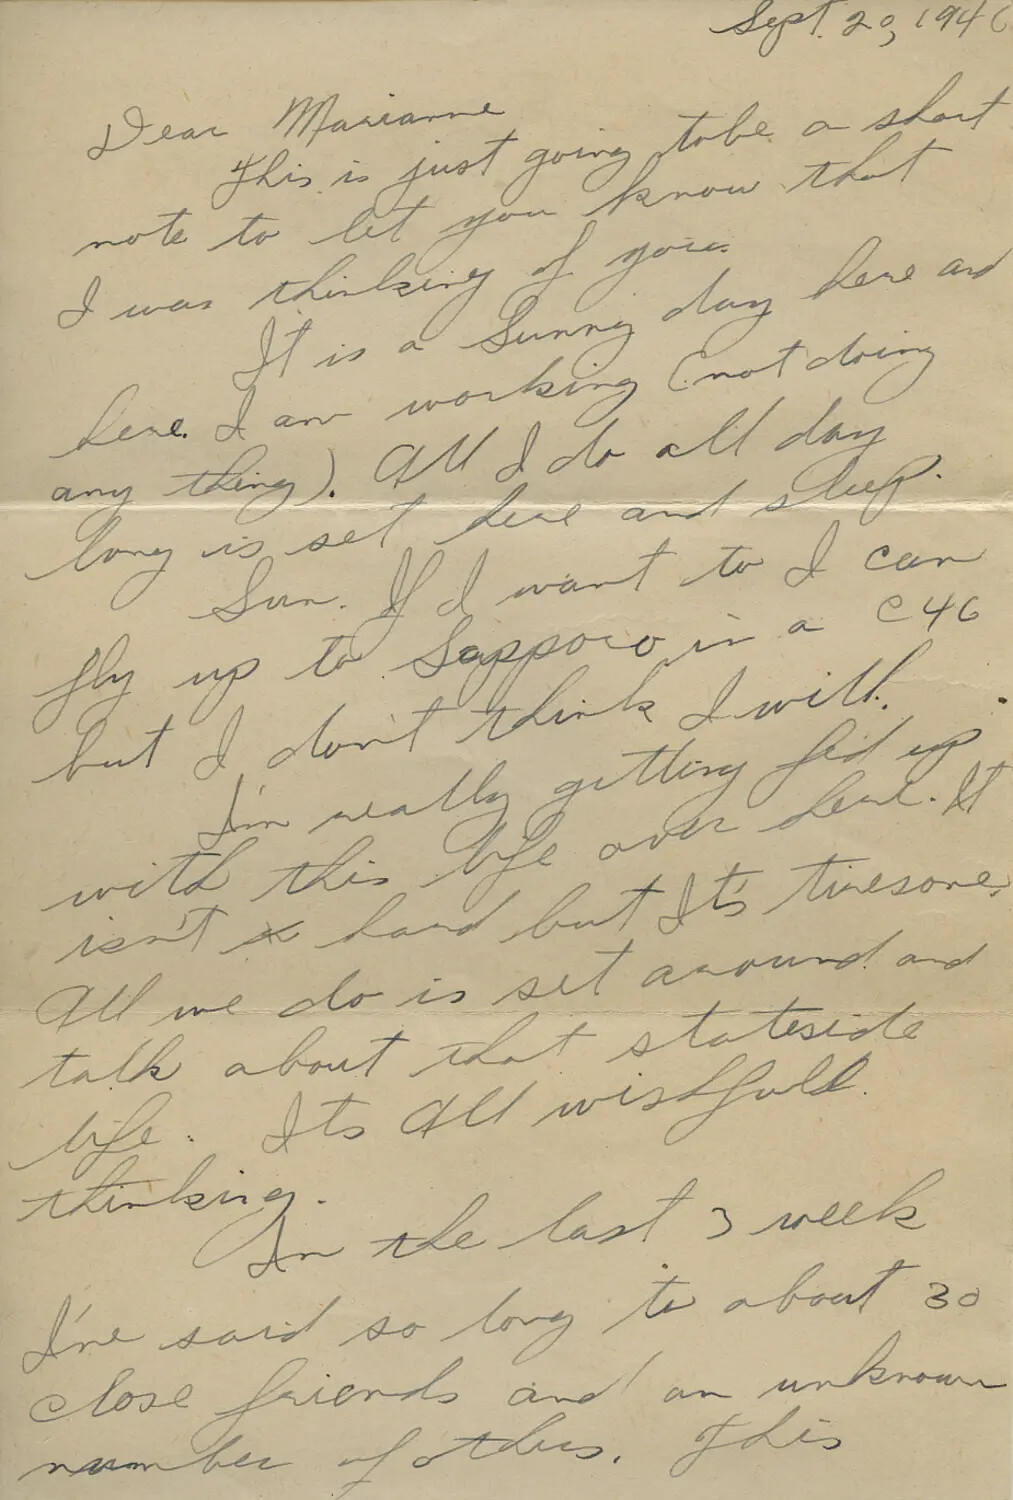 Sept. 20, 1946
Dear Marianne
This is just going tobe a short
note to let you know that
I was thinking of you.
It is a Sunny day here and
here I am working (not doing
any thing). All I do all day
long is set here and sleep.
Sun. If I want to I can
fly up to Sapporo in a C46
but I don't think I will.
I'm really getting fed up
with this life over here. It
isn't hard but It's tiresome.
All we do is set around and
talk about that stateside
life. Its All wishfull
thinking.
In the last 3 week
I've said so long to about 30
close friends and an unknown
number of others. This